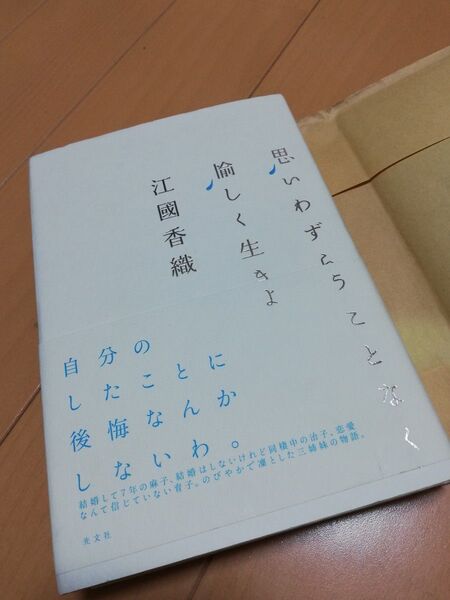 思いわずらうことなく
愉しく生きよ
江國香織
自分の
したことに
後悔なんか
しないわ。
結婚して7年の麻子、結婚はしないけれど同棲中の治子、恋愛
なんて信じていない育子。のびやかで凜とした三姉妹の物語。
光文社